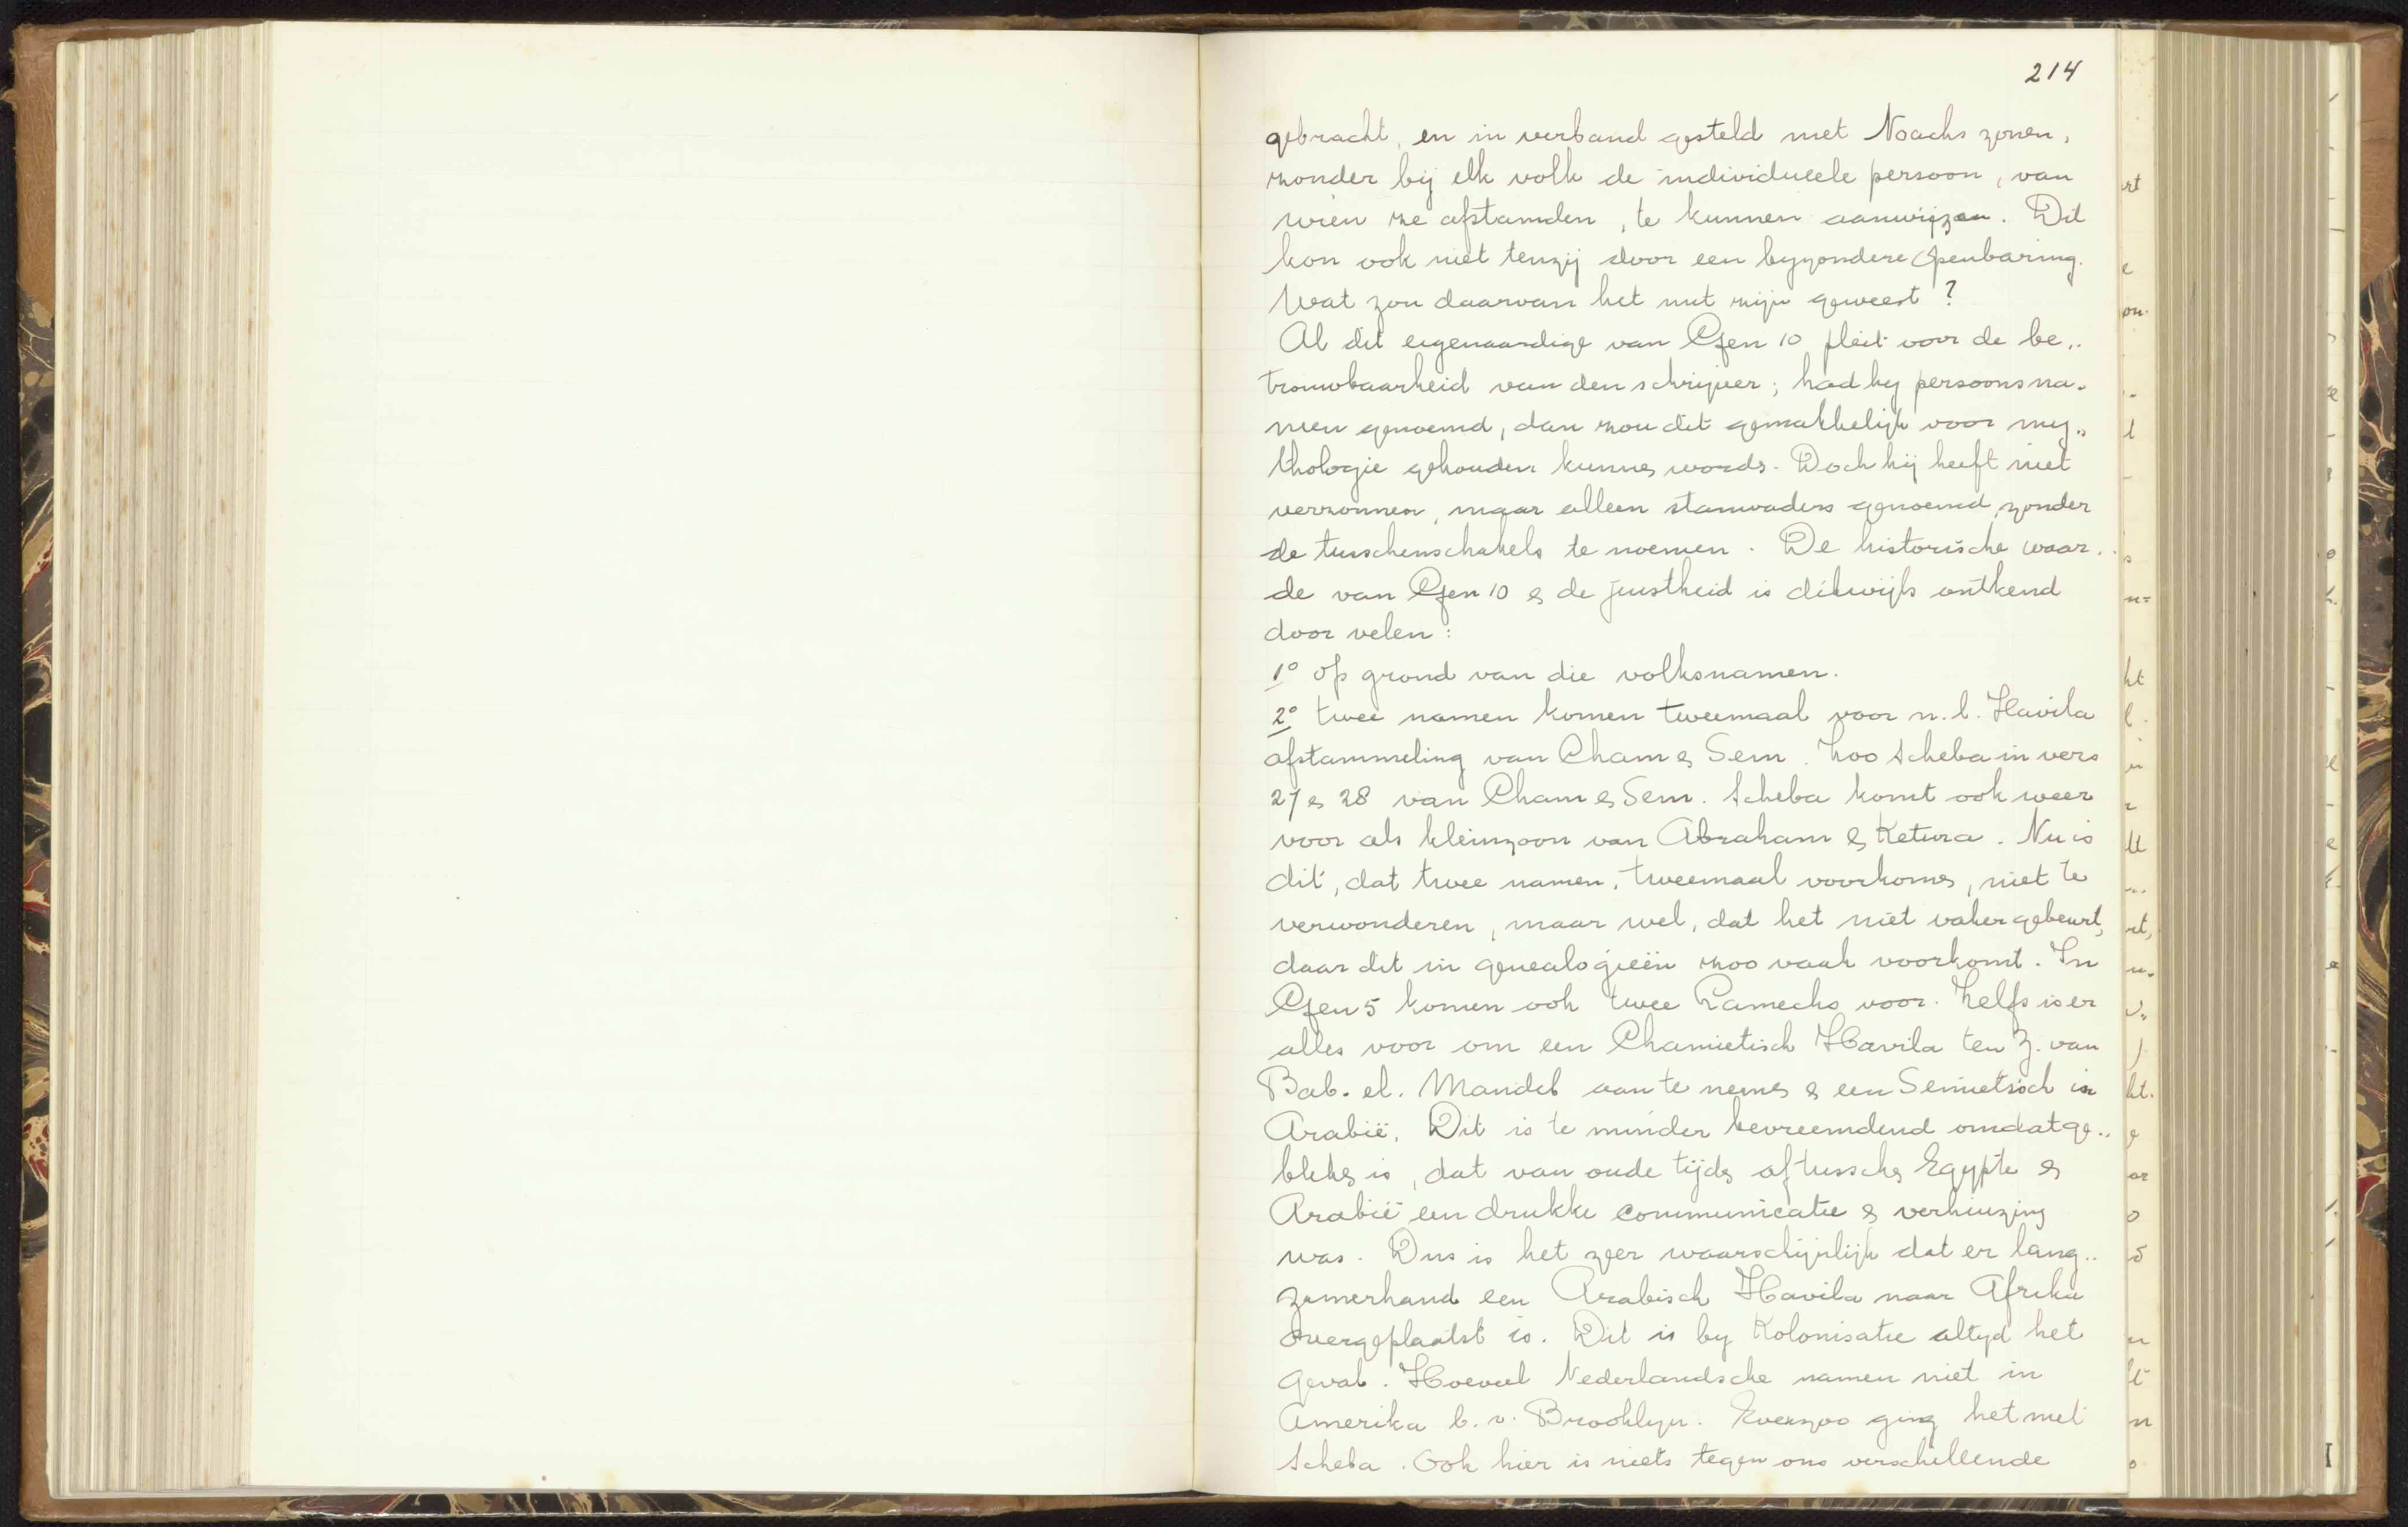 214
gebracht, en in verband gesteld met Noachs zonen,
zonder bij elk volk de individueele persoon, van
wien ze afstamden, te kunnen aanwijzen. Dit
kon ook niet tenzij door een byzondere Openbaring.
Wat zou daarvan het nut zijn geweest?
Al dit eigenaardige van Gen 10 pleit voor de be„
trouwbaarheid van den schrijver; had hy persoonsna-
men genoemd, dan zou dit gemakkelijk voor my„
thologie gehouden kunnen worden. Doch hij heeft niet
verzonnen, maar alleen stamvaders genoemd, zonder
de tusschenschakels te noemen. De historische waar„
de van Gen 10 & de juistheid is dikwijls ontkend
door velen:
1° op grond van die volksnamen.
2° twee namen komen tweemaal voor n.l. Havila
afstammeling van Cham & Sem. Zoo Scheba in vers
27 & 28 van Cham & Sem. Scheba komt ook weer
voor als kleinzoon van Abraham & Ketura. Nu is
dit, dat twee namen, tweemaal voorkomen, niet te
verwonderen, maar wel, dat het niet vaker gebeurt,
daar dit in genealogieën zoo vaak voorkomt. In
Gen 5 komen ook twee Lamechs voor. Zelfs is er
alles voor om een Chamietisch Havila ten Z. van
Bab. el. Mandeb aan te nemen & een Semietisch in
Arabië. Dit is te minder bevreemdend omdat ge„
bleken is, dat van oude tijden af tusschen Egypte &
Arabië een drukke communicatie & verhuizing
was. Dus is het zeer waarschijnlijk dat er lang„
zamerhand een Arabisch Havila naar Afrika
overgeplaatst is. Dit is by Kolonisatie altyd het
geval. Hoeveel Nederlandsche namen niet in
Amerika b.v. Brooklyn. Evenzoo ging het met
Scheba. Ook hier is niets tegen ons verschillende